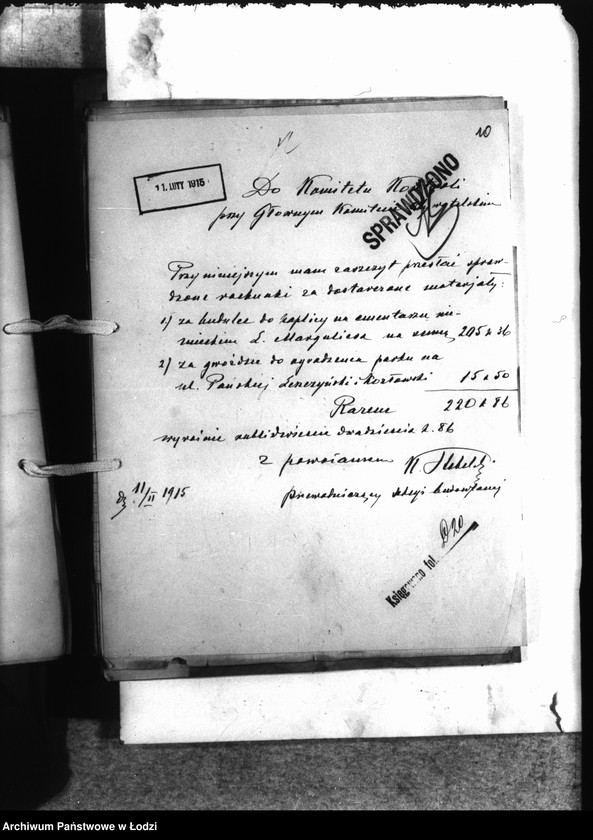 10
11. LUTY 1915
Do Komitetu Kontroli
SPRAWDZONO
przy Głownym Komitecie Obywatelskim
Przy niniejszym mam zaszczyt przesłać spraw-
dzone rachunki za dostarczone materjały:
1) za budulec do kaplicy na cmentarzu nie-
mieckim L. Margulies na sumę 205 k 36
2) za gwoździe do ogrodzenia parku na
ul. Pańskiej Leszczyński i Kozłowski 15 k 50
Razem 220 k 86
wyraźnie rubli dwieście dwadzieścia k. 86
z poważaniem
d. 11/II 1915
przewodniczący sekcji budowlanej
Księgowano fol. 20
Archiwum Państwowe w Łodzi